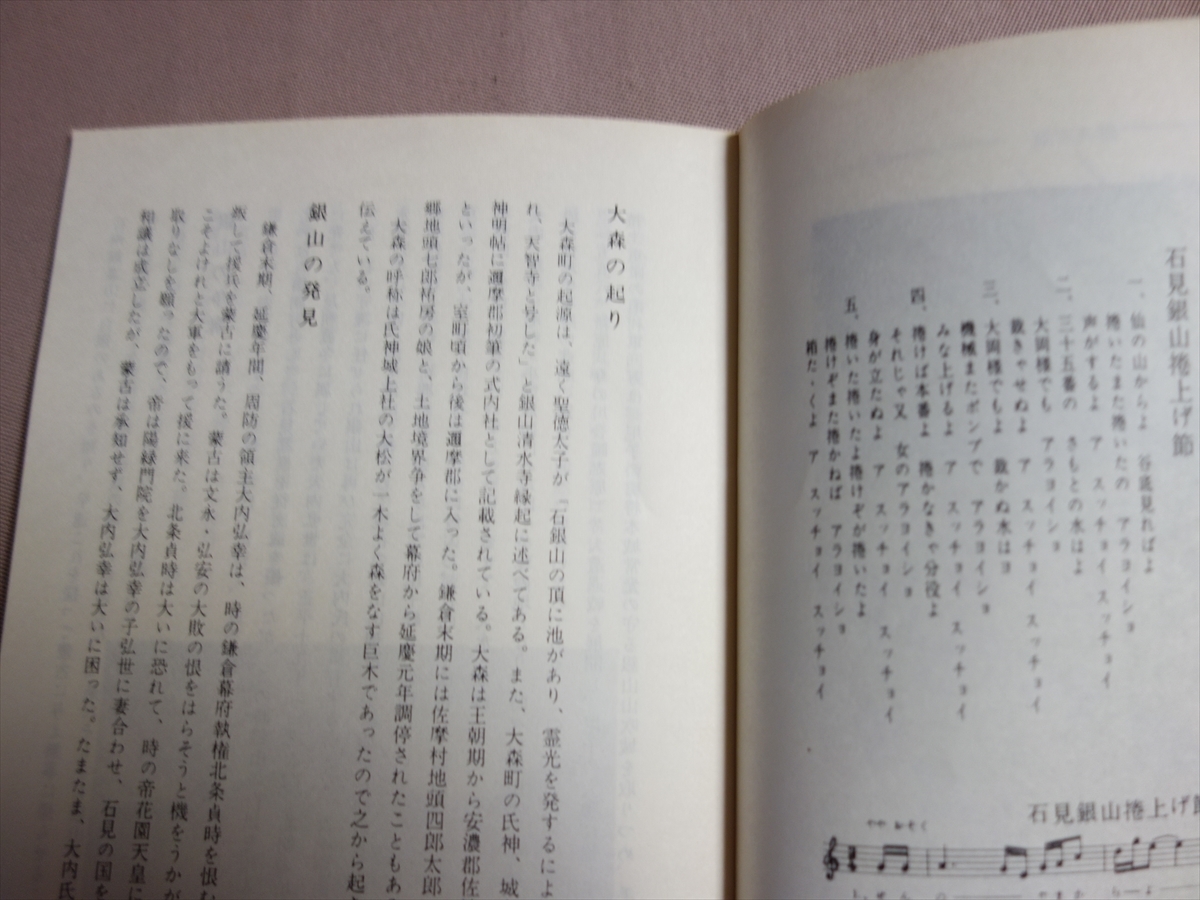 石見銀山捲上げ節
一、仙の山からよ　谷底見ればよ
捲いたまた捲いたの　アラヨイショ
声がするよ　ア　スッチョイ　スッチョイ
二、三十五番の　さもとの水はよ
大岡様でも　アラヨイショ
裁きゃせぬよ　ア　スッチョイ　スッチョイ
三、大岡様でもよ　裁かぬ水はヨ
機械またポンプで　アラヨイショ
みな上げるよ　ア　スッチョイ　スッチョイ
四、捲けば本番よ　捲かなきゃ分役よ
それじゃ又　女のアラヨイショ
身が立たぬよ　ア　スッチョイ　スッチョイ
五、捲いた捲いたよ捲けぞが捲いたよ
捲けぞまた捲かねば　アラヨイショ
ア　スッチョイ　スッチョイ
石見銀山捲上げ節
大森の起り
大森町の起源は、遠く聖徳太子が「石銀山の頂に池があり、霊光を発するによ
れ、天智寺と号した」と銀山清水寺縁起に述べてある。また、大森町の氏神、城
神明帖に邇摩郡初筆の式内社として記載されている。大森は王朝期から安濃郡佐
といったが、室町頃から後は邇摩郡に入った。鎌倉末期には佐摩村地頭四郎太郎
郷地頭七郎祐房の娘と、土地境界争をして幕府から延慶元年調停されたこともあ
大森の呼称は氏神城上社の大松が一木よく森をなす巨木であったので之から起
伝えている。
銀山の発見
鎌倉末期、延慶年間、周防の領主大内弘幸は、時の鎌倉幕府執権北条貞時を恨む
叛して援兵を蒙古に請うた。蒙古は文永・弘安の大敗の恨をはらそうと機をうかが
こそよけれと大軍をもって援に来た。北条貞時は大いに恐れて、時の帝花園天皇に
取りなしを願ったので、帝は陽緑門院を大内弘幸の子弘世に妻合わせ、石見の国を
和議は成立したが、蒙古は承知せず、大内弘幸は大いに困った。たまたま、大内氏